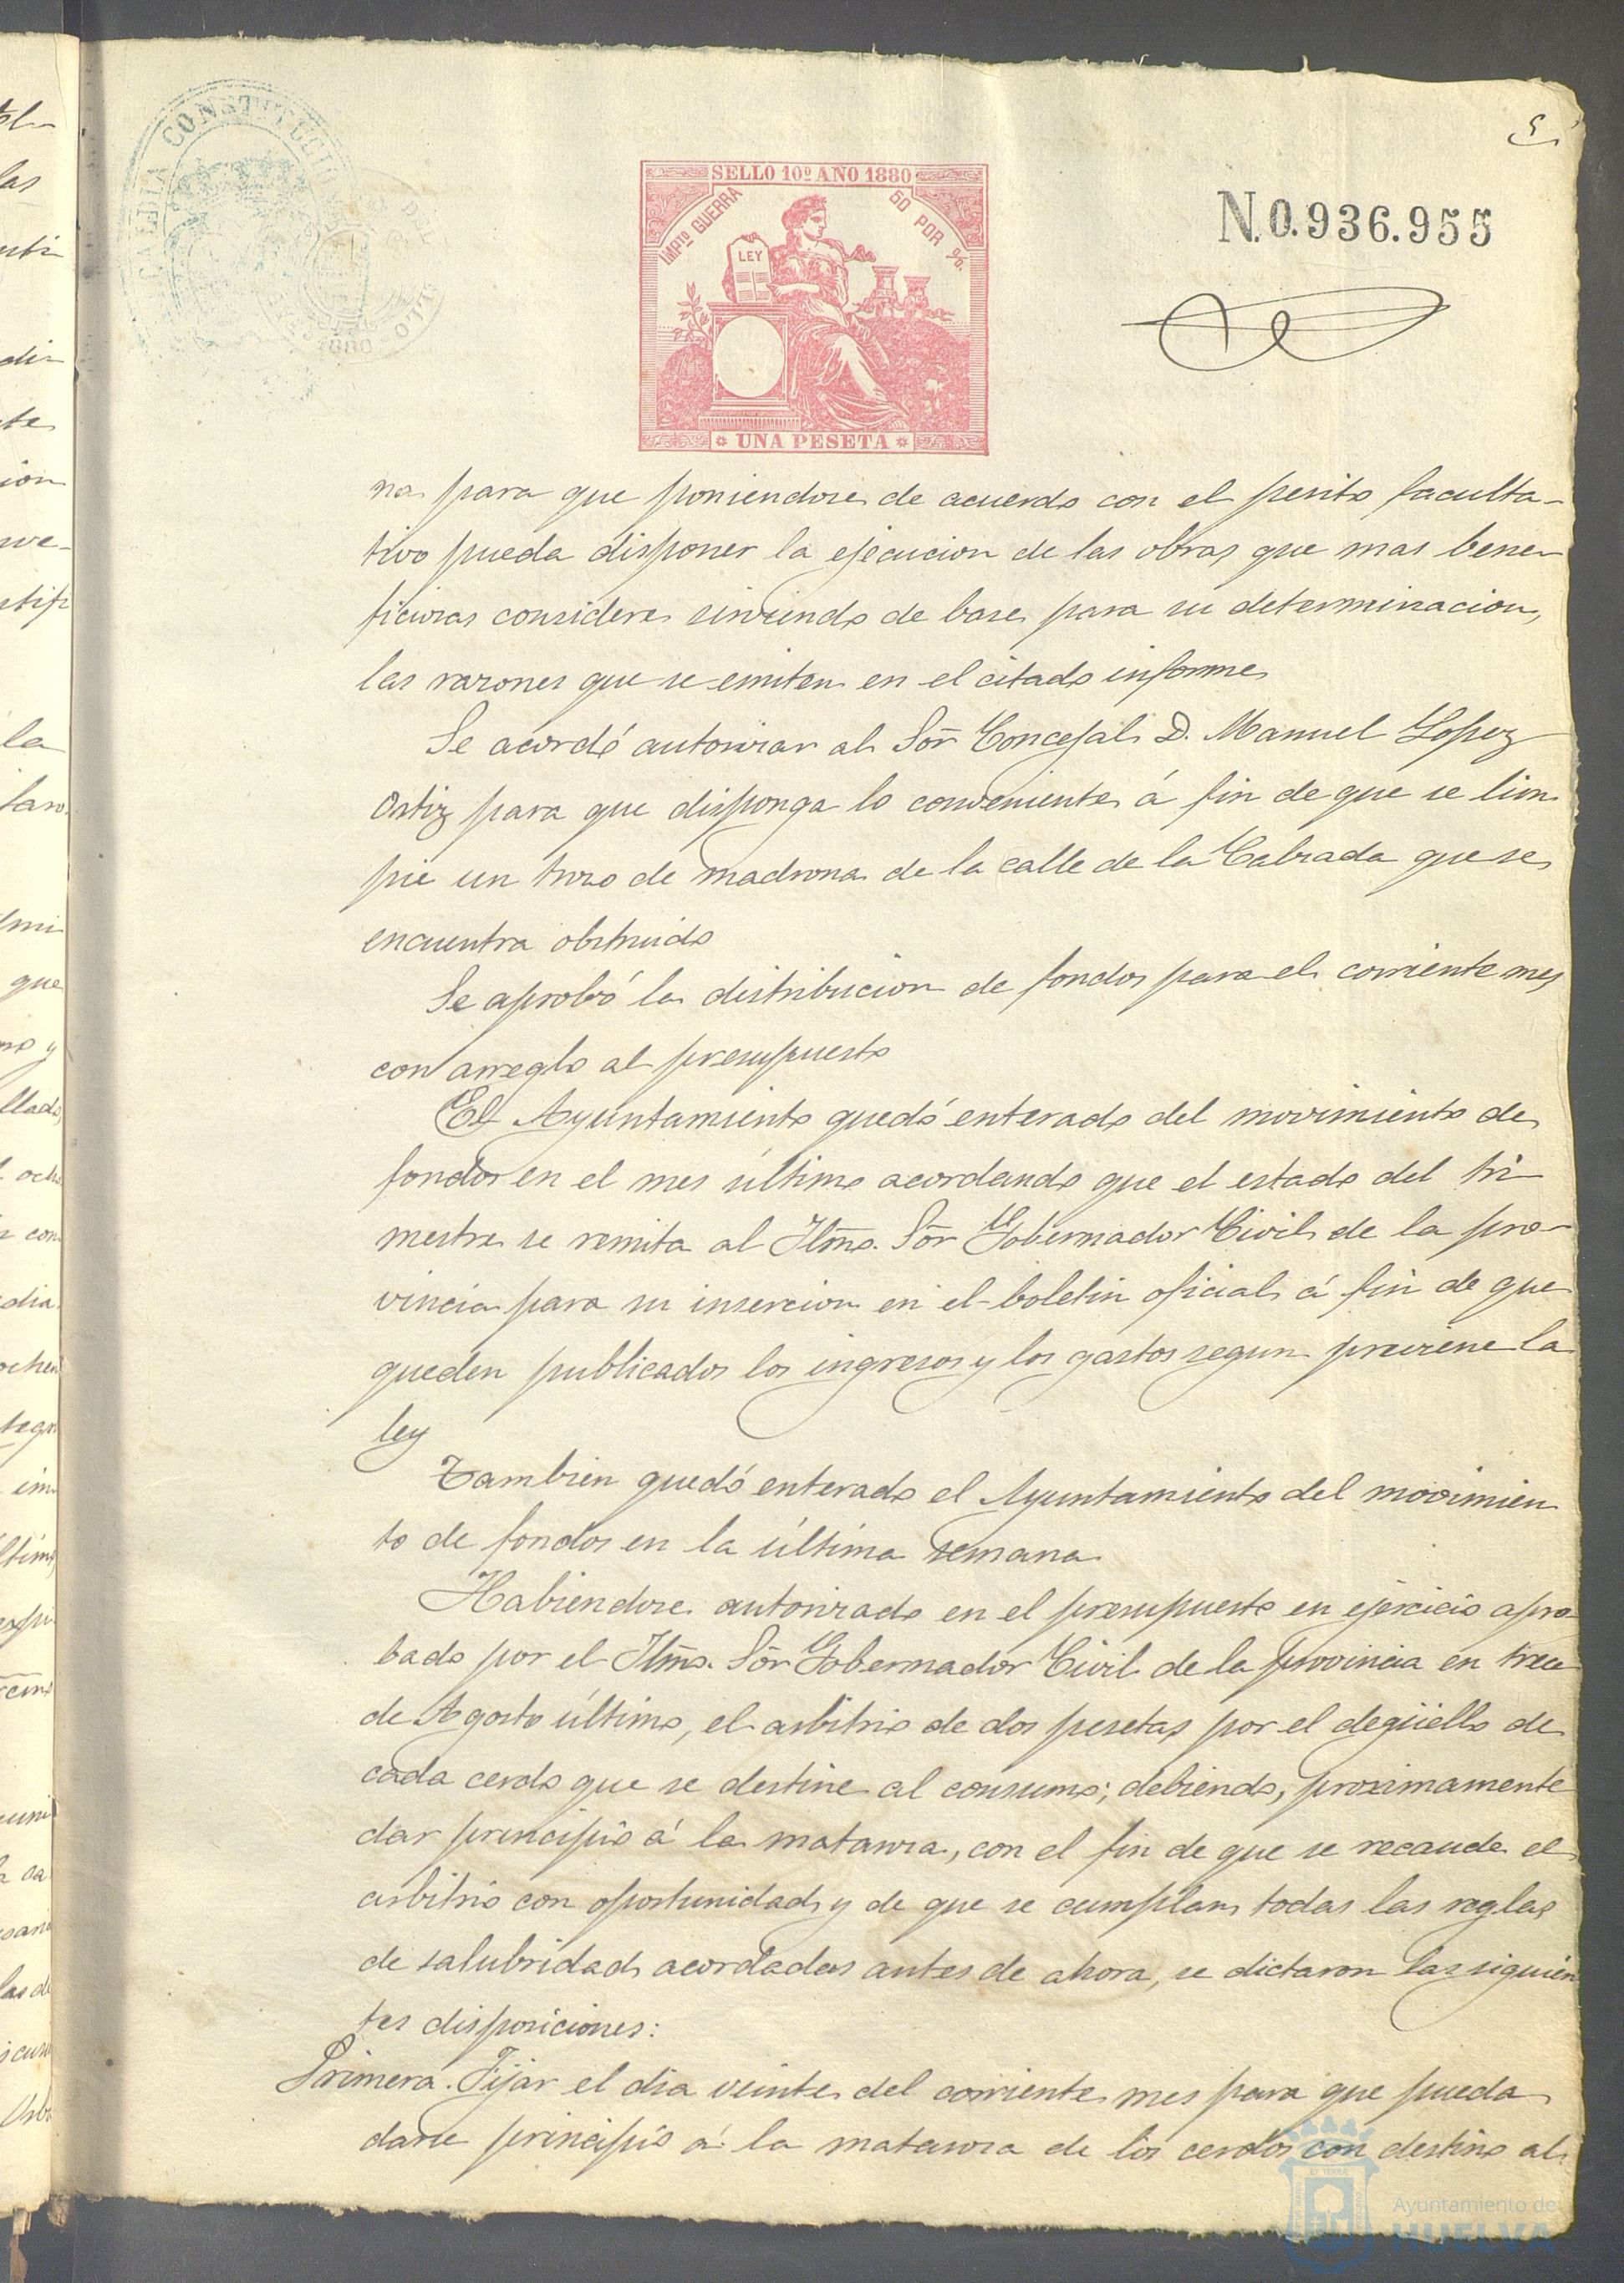 5
ALCALDIA CONSTITUCIONAL
1880
SELLO 10º AÑO 1880
IMPTO GUERRA
50 POR %.
LEY
UNA PESETA
N.0.936.955
na para que poniendose de acuerdo con el perito faculta-
tivo pueda disponer la ejecucion de las obras que mas bene-
ficiosas considere sirviendo de base para su determinacion,
las razones que se emiten en el citado informe
Se acordó autorizar al Sor̃ Concejal D. Manuel Lopez
Ortiz para que disponga lo conveniente á fin de que se lim
pie un trozo de madrona de la calle de la Calzada que se
encuentra obstruido
Se aprobó la distribucion de fondos para el corriente mes
con arreglo al presupuesto
El Ayuntamiento quedó enterado del movimiento de
fondos en el mes último acordando que el estado del tri-
mestre se remita al Iltm̃o. Sor̃ Gobernador Civil de la pro-
vincia para su insercion en el boletin oficial á fin de que
queden publicados los ingresos y los gastos segun previene la
ley
Tambien quedó enterado el Ayuntamiento del movimien
to de fondos en la última semana
Habiendose autorizado en el presupuesto en ejercicio apro-
bado por el Iltm̃o. Sor̃ Gobernador Civil de la provincia en trece
de Agosto último, el arbitrio de dos pesetas por el degüello de
cada cerdo que se destine al consumo; debiendo, proximamente
dar principio á la matanza, con el fin de que se recaude el
arbitrio con oportunidad y de que se cumplan todas las reglas
de salubridad acordadas antes de ahora, se dictaron las siguien
tes disposiciones:
Primera. Fijar el dia veinte del corriente mes para que pueda
darse principio á la matanza de los cerdos con destino al
Ayuntamiento de
HUELVA